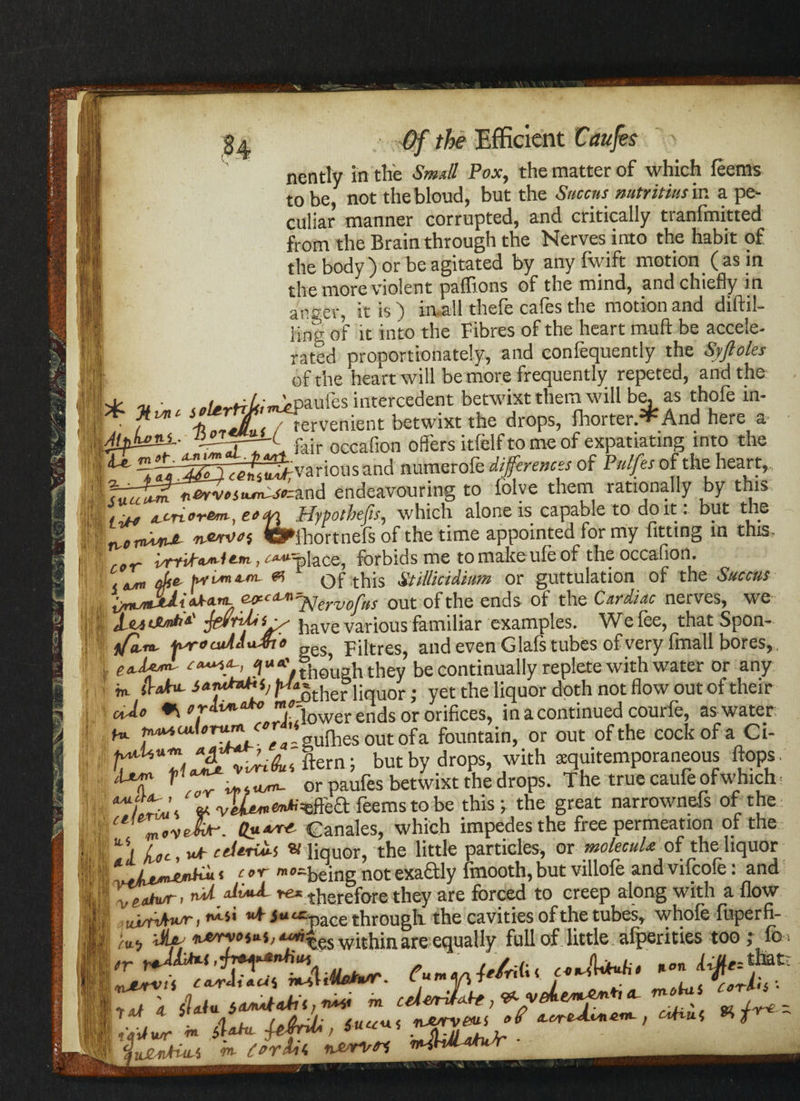 84 Of the Efficient Causes
nently in the Small Pox, the matter of which ſeems
to be, not the bloud, but the Succus nutritius in a pe-
culiar manner corrupted, and critically tranſmitted
from the Brain through the Nerves into the habit of
the body) or be agitated by any ſwift motion (as in
the more violent paſſions of the mind, and chiefly in
anger, it is) in all theſe caſes the motion and diſtil-
ling of it into the Fibres of the heart muſt be accele-
rated proportionately, and conſequently the Syſtoles
of the heart will be more frequently repeted, and the
pauſes intercedent betwixt them will be, as thoſe in-
tervenient betwixt the drops, ſhorter.* And here a
fair occaſion offers itſelf to me of expatiating into the
various and numeroſe differences of Pulſes of the heart,
and endeavouring to ſolve them rationally by this
Hypotheſis, which alone is capable to do it: but the
ſhortneſs of the time appointed for my fitting in this
place, forbids me to make uſe of the occaſion.
Of this Stillicidium or guttulation of the Succus
Nervoſus out of the ends of the Cardiac nerves, we
have various familiar examples. We ſee, that Spon-
ges, Filtres, and even Glaſs tubes of very ſmall bores,
though they be continually replete with water or any
other liquor; yet the liquor doth not flow out of their
lower ends or orifices, in a continued courſe, as water
guſhes out of a fountain, or out of the cock of a Ci-
ſtern; but by drops, with æquitemporaneous ſtops
or pauſes betwixt the drops. The true cauſe of which
effect ſeems to be this; the great narrowneſs of the
Canales, which impedes the free permeation of the
liquor, the little particles, or moleculæ of the liquor
being not exactly ſmooth, but villoſe and viſcoſe: and
therefore they are forced to creep along with a flow
pace through the cavities of the tubes, whoſe ſuperfi-
cies within are equally full of little aſperities too; ſo
that
* Hinc solertissime
Alphons. Borellus
de mot. animal. part.
2. pag. 460) censuit
succum nervosum so-
lito acriorem, eo
nomine nervos
irritantem, cau-
sam esse primam et
immediatam
febrilis
Nam procul dubio
eadem causa, qua
in statu sanitatis,
ordinato mo-
tu musculorum cordis
pulsum agitat, ea-
dem plane viribus
aucta, cor ipsum
celerius et vehementi-
us movebit. Quare
ad hoc, ut celerius et
vehementius cor mo-
veatur, nil aliud re-
quiritur, nisi ut suc-
cus ille nervosus,
frequentius
nervis cardiacis instilletur. Cum febrilis constitutio non diffe-
rat a statu sanitatis, nisi in celeritate, et vehementia motus cordis:
in statu febrili, succus nerveus ob acredinem, citius et fre-
quentius in cordis nervos instillatur.